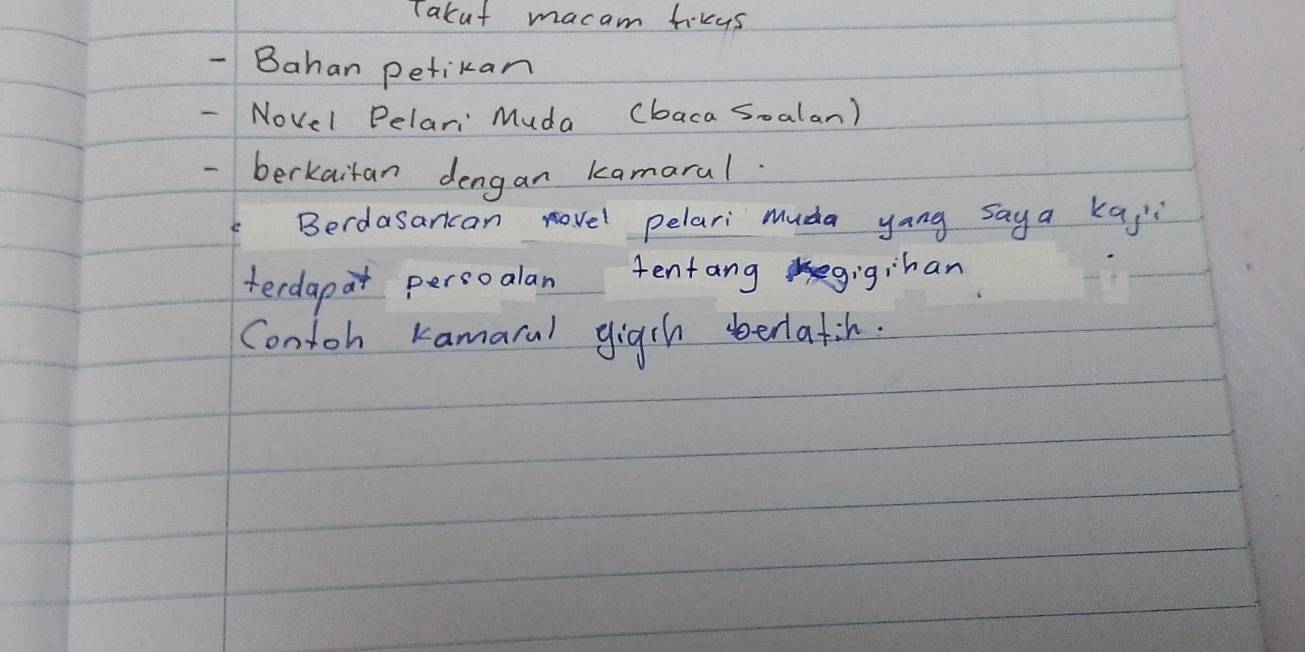 Takut macam tikus
- Bahan petikan
- Novel Pelari Muda (baca Soalan)
- berkaitan dengan kamarul.
Berdasarkan novel pelari muda yang saya kaji
terdapat persoalan tentang kegigihan.
Contoh kamarul gigih berlatih.